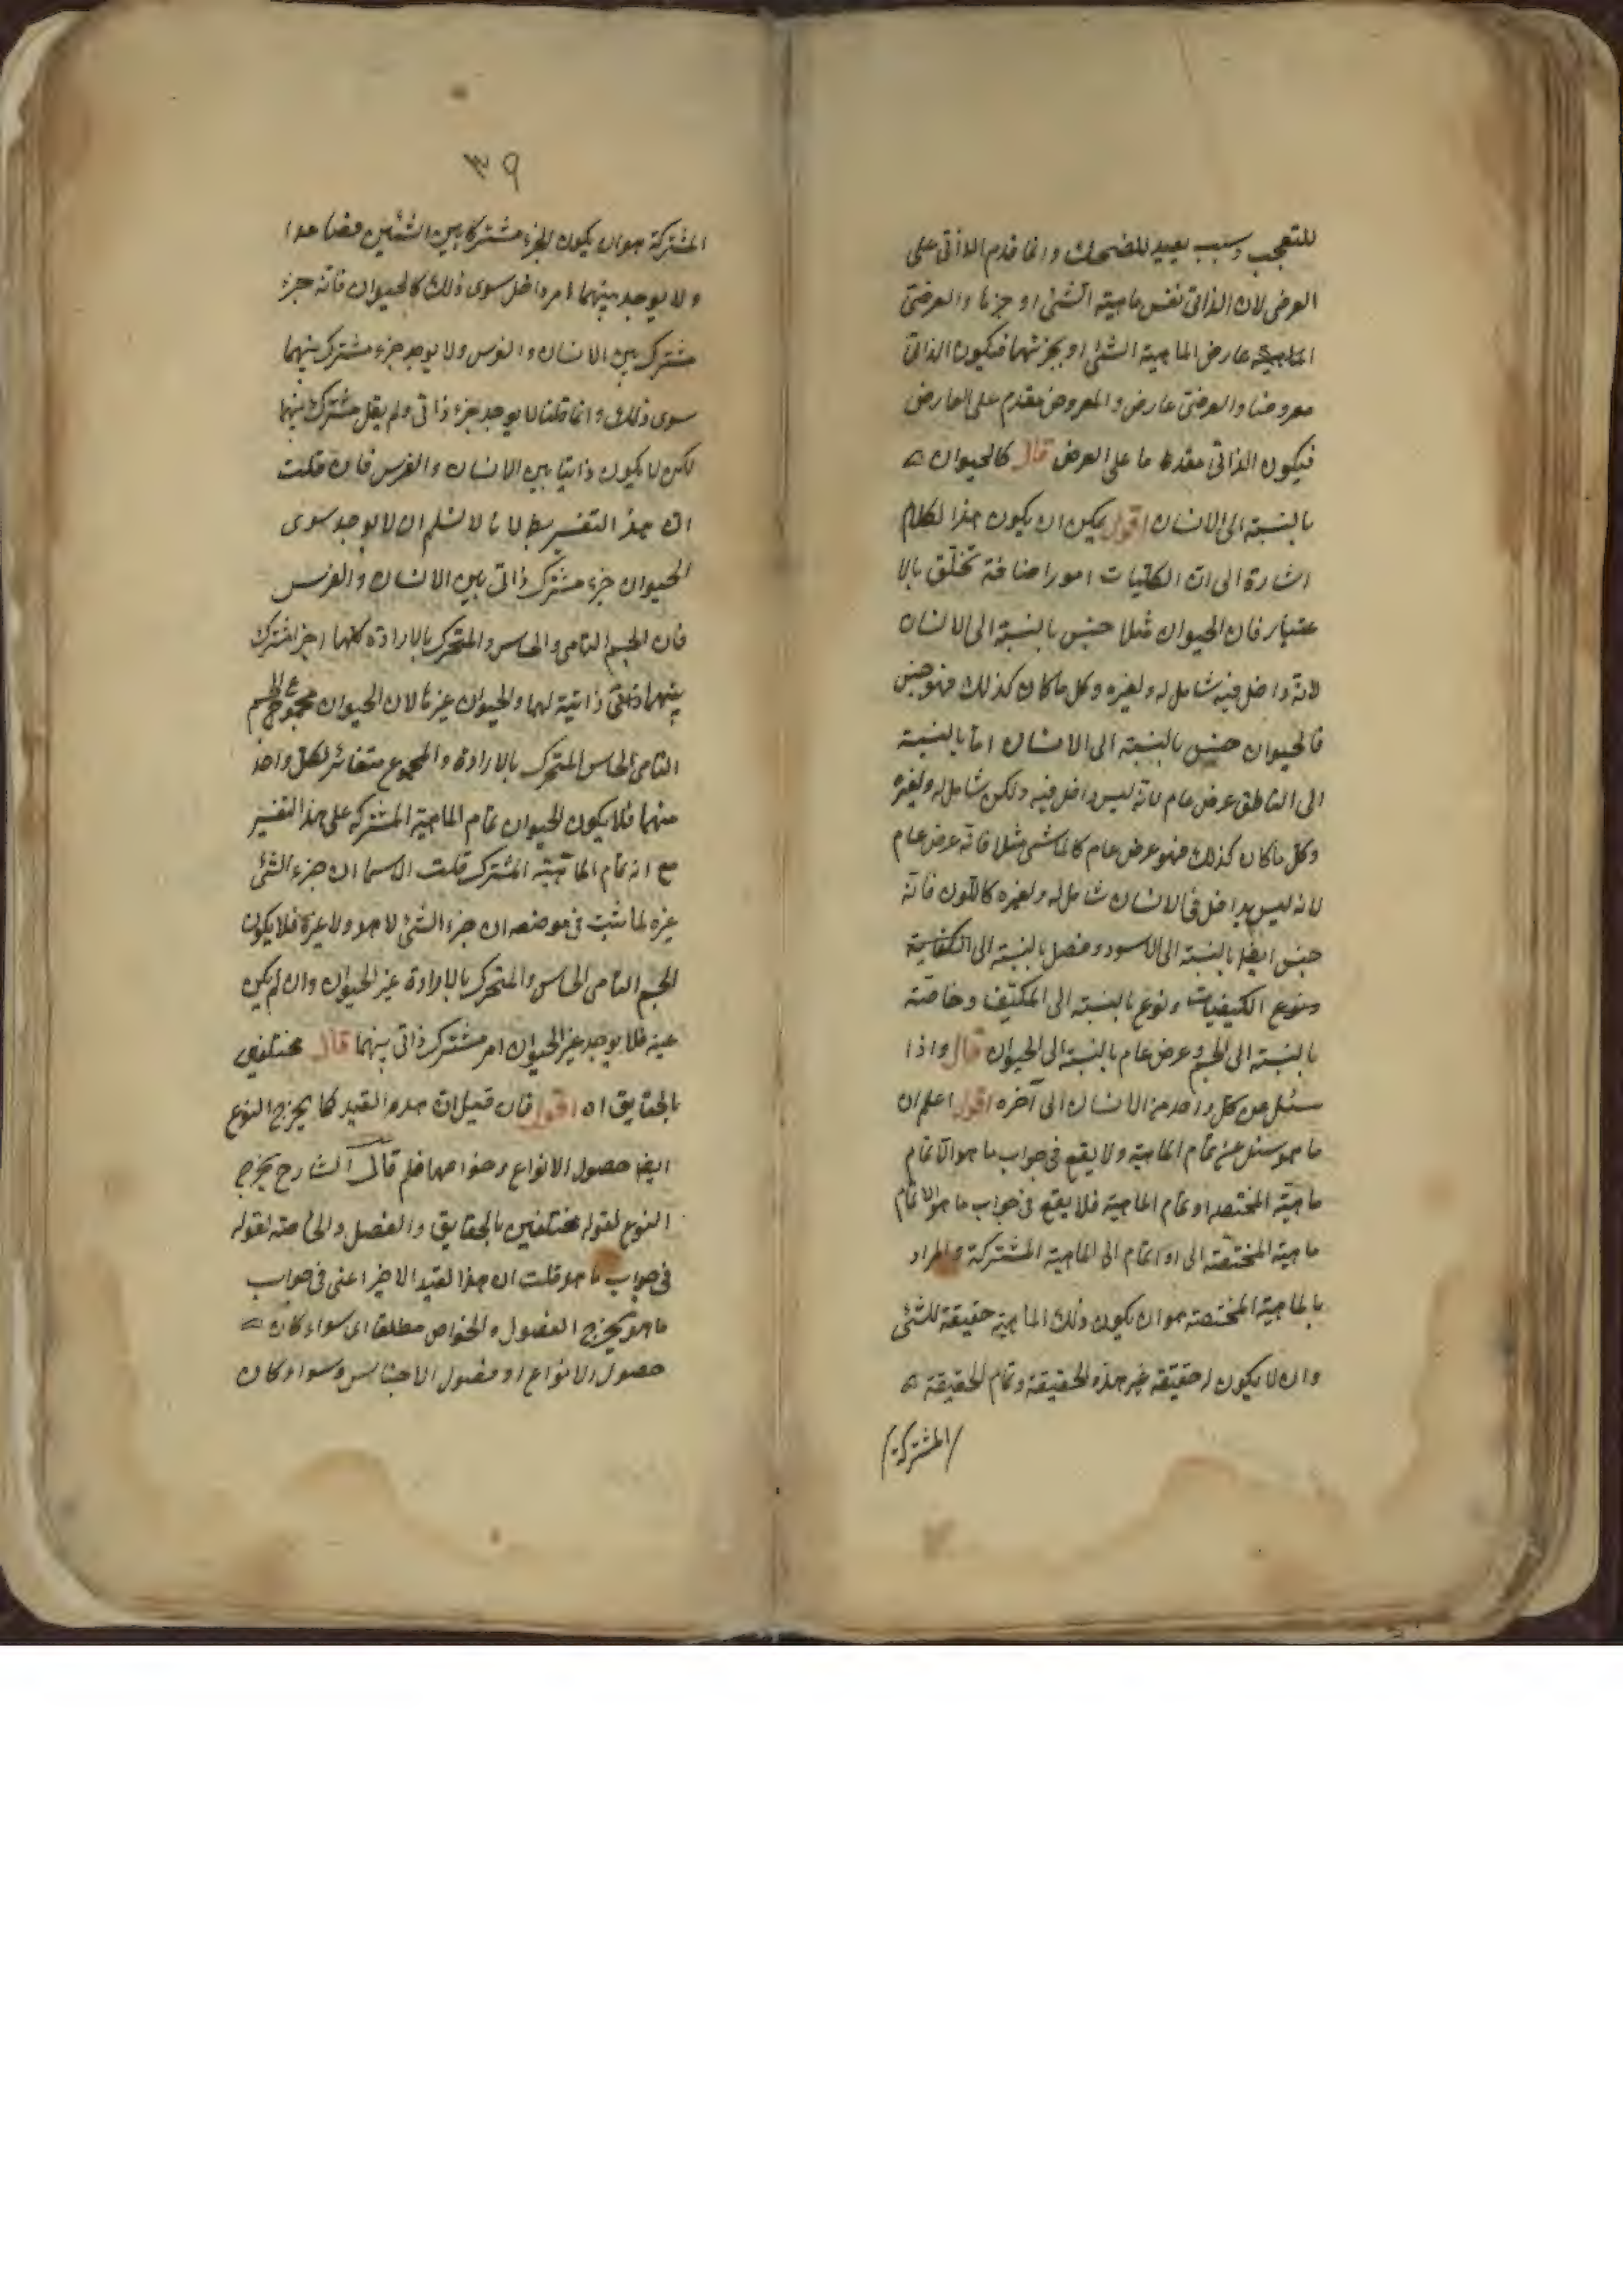 للتعجب وسبب بعيد للضحك وانما قدم الذاتى على
العرض لان الذاتى نفس ماهية الشئ او جزئها والعرضى
عارض الماهية الشئ او بجزئها فيكون الذاتى
معروضا والعرضى عارض والمعروض مقدم على العارض
فيكون الذاتى مقدما على العرض قال كالحيوان
بالنسبة الى الانسان اقول يمكن ان يكون هذا الكلام
اشارة الى ان الكليات امورا ضافة تختلق بالا
عتبار فان الحيوان مثلا جنس بالنسبة الى الانسان
لانه داخل فيه شامل له ولغيره وكل ما كان كذلك فهو جنس
فالحيوان جنس بالنسبة الى الانسان اما بالنسبة
الى الناطق عرض عام لانه ليس داخل فيه ولكن شامل له ولغيره
وكل ما كان كذلك فهو عرض عام كالماشى مثلا فانه عرض عام
لانه ليس بداخل فى الانسان شامل له ولغيره كاللون فانه
جنس ايضا بالنسبة الى الاسود وفصل بالنسبة الى
الكيفيات ونوع بالنسبة الى المكيف وخاصة
بالنسبة الى الجسم وعرض عام بالنسبة الى الحيوان قال واذا
سئل عن كل واحد من الانسان الى آخره اقول اعلم ان
ما هو سئل عن تمام الماهية ولا يقع فى جواب ما هو الا تمام
ماهية المختصه او تمام الماهية فلا يقع فى جواب ما هو الا تمام
ماهية المختصة الى او اتمام الى الماهية المشتركة والمراد
بالماهية المختصة هو ان يكون ذلك الماهية حقيقة للشئ
وان لا يكون له حقيقة غير هذه الحقيقة وتمام الحقيقة
المشتركة
٣٩
المشتركة هو ان يكون الجزء مشتركا بين الشئين فصاعدا
ولا يوجد بينهما امر داخل سوى ذلك كالحيوان فانه جزء
مشترك بين الانسان والفرس ولا يوجد جزء مشترك بينهما
سوى ذلك وانما قلنا لا يوجد جزء ذاتى ولم يقل مشترك بينهما
لكن لا يكون ذاتيا بين الانسان والفرس فان قلت
ان هذ التفسير بط لانا لا نسلم ان لا يوجد سوى
الحيوان جزء مشترك ذاتى بين الانسان والفرس
فان الجسم النامى والحساس والمتحرك بالارادة كلها اجزا مشترك
بينهما ذاتية لهما والحيوان غيرها لان الحيوان مجموع الجسم
النامى الحساس المتحرك بالارادة والمجموع متغائر لكل واحد
منهما فلا يكون الحيوان تمام الماهية المشتركة على هذا التفسير
مع انه تمام الماهية المشترك قلت ان جزء الشئ
غيره لما ثبت فى موضعه ان جزء الشئ لا هو ولا غيره فلا يكون
الجسم النامى الحساس والمتحرك بالارادة غير الحيوان وان لم يكن
عينه فلا يوجد غير الحيوان امر مشترك ذاتى بينهما قال مختلفين
بالحقايق اه اقول فان قيل ان هذه القيد كما يخرج النوع
ايضا حصول الانواع وخواصها فلم قال الشارح يخرج
النوع لقوله مختلفين بالحقايق والفصل والخاصة لقوله
فى جواب ما هو قلت ان هذا لقيد الاخير اعنى فى جواب
ما هو يخرج الفصول والخواص مطلقا اى سواء كان
حصول الانواع او فصول الاجناس وسواء كان